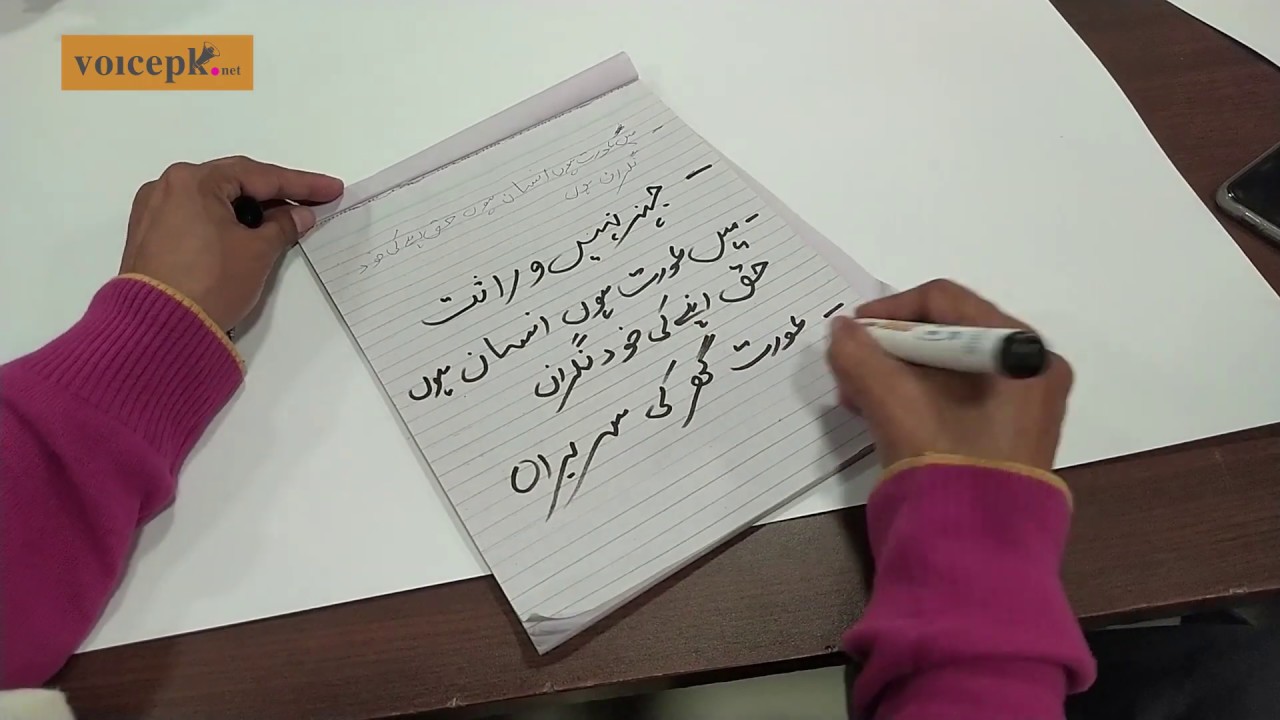 voicepk.net
میں عورت ہوں انسان ہوں حق اپنے کی خود
نگران ہوں
- جہیز نہیں وراثت
- میں عورت ہوں انسان ہوں
حق اپنے کی خود نگران
- عورت گھر کی سربراہ